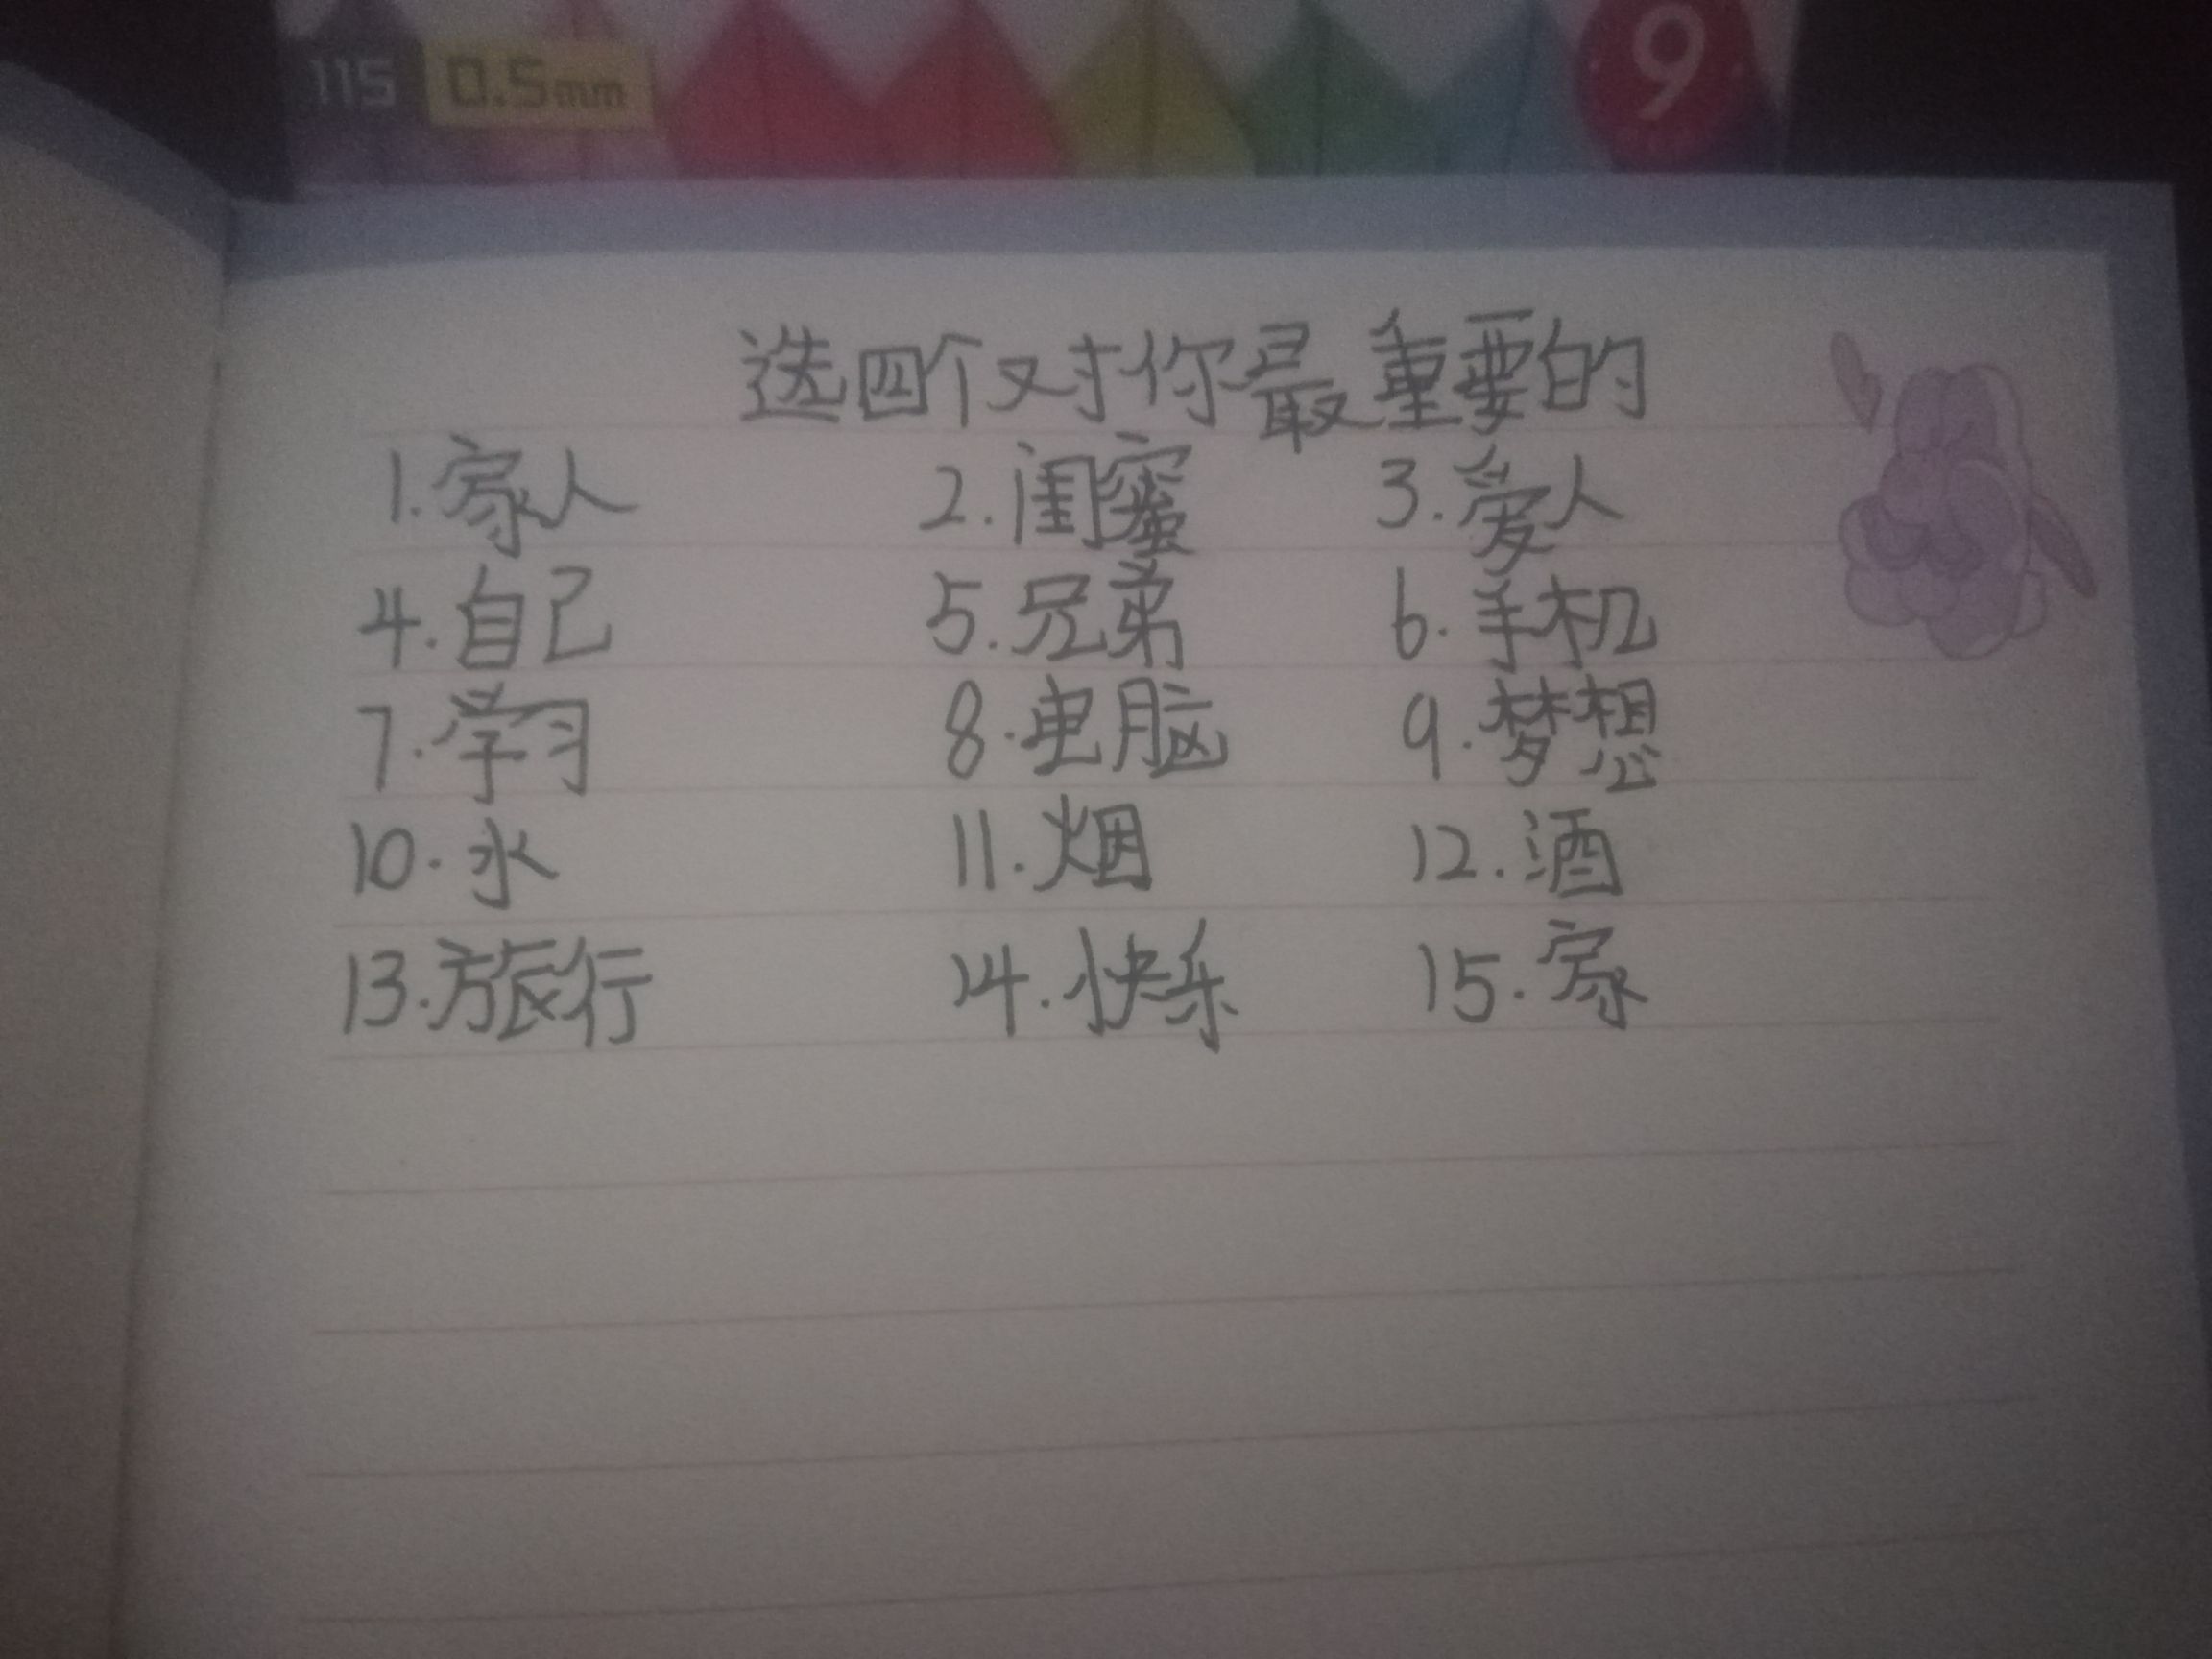 115 0.5mm 9
选四个对你最重要的
1.家人 2.闺蜜 3.爱人
4.自己 5.兄弟 6.手机
7.学习 8.电脑 9.梦想
10.水 11.烟 12.酒
13.旅行 14.快乐 15.家